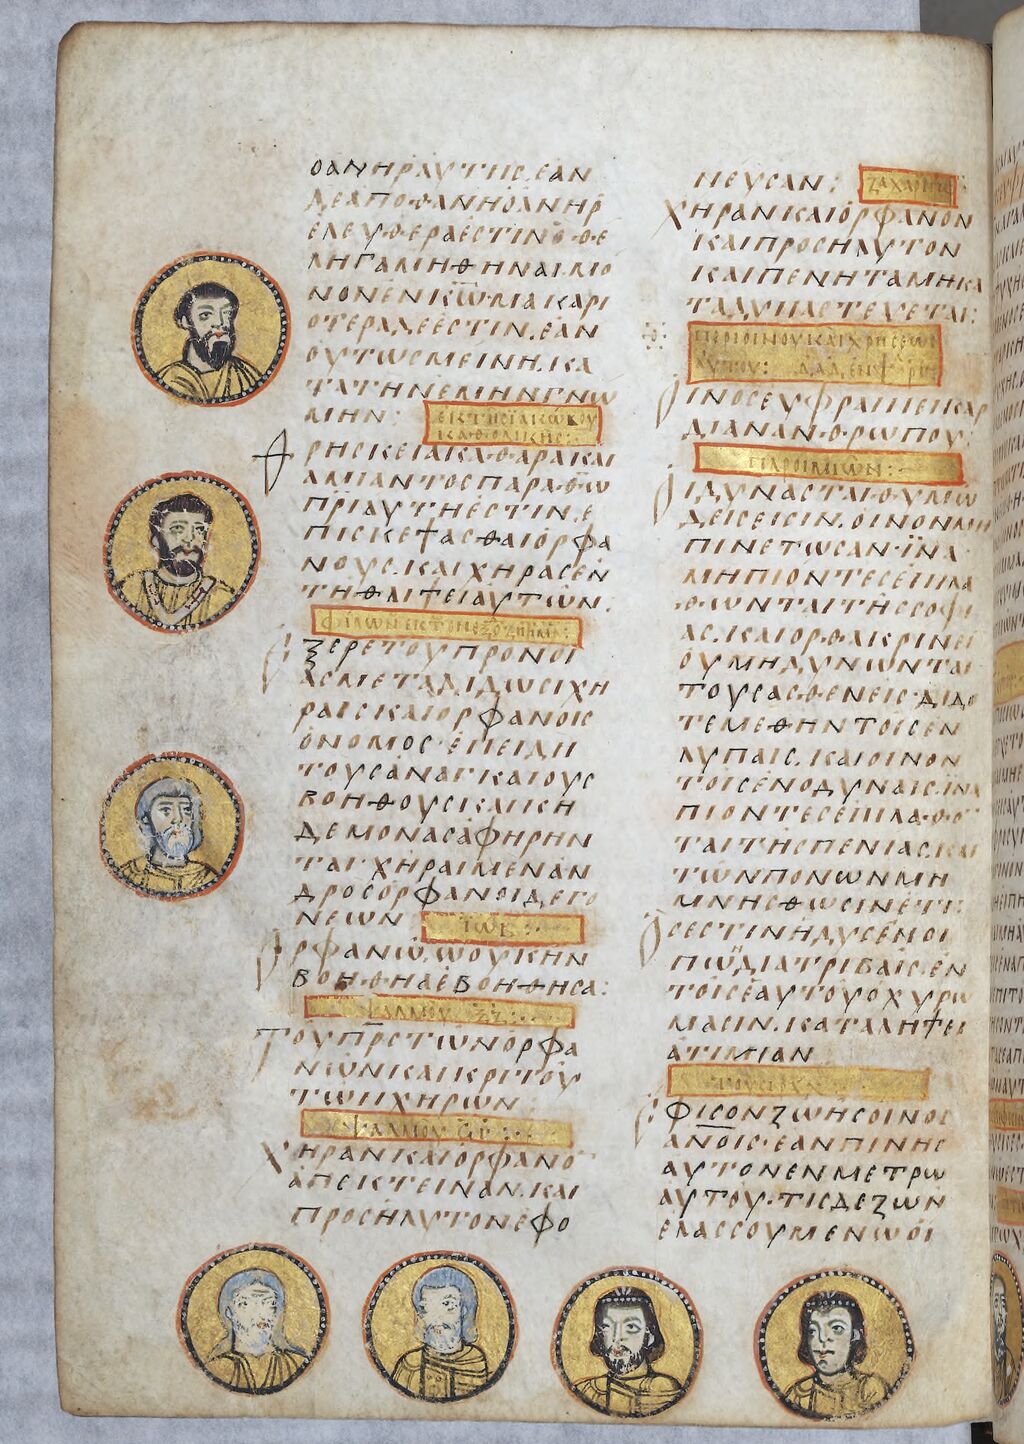 ΟΑΝΗΡΑΥΤΗΣ. ΕΑΝ
ΔΕΑΠΟΘΑΝΗΟΑΝΗΡ
ΕΛΕΥΘΕΡΑΕΣΤΙΝΩΘΕ
ΛΗΓΑΜΗΘΗΝΑΙ. ΜΟ
ΝΟΝΕΝΚΩ. ΜΑΚΑΡΙ
ΟΤΕΡΑΔΕΕΣΤΙΝ. ΕΑΝ
ΟΥΤΩΣΜΕΙΝΗ. ΚΑ
ΤΑΤΗΝΕΜΗΝΓΝΩ
ΜΗΝ:
ΕΚΤΗΣΙΑΚΩΒΟΥ
ΚΑΘΟΛΙΚΗΣ:
ΘΡΗΣΚΕΙΑΚΑΘΑΡΑΚΑΙ
ΑΜΙΑΝΤΟΣΠΑΡΑΘΩ
ΠΡΙΑΥΤΗΕΣΤΙΝ. Ε
ΠΙΣΚΕΨΑΣΘΑΙΟΡΦΑ
ΝΟΥΣ. ΚΑΙΧΗΡΑΣΕΝ
ΤΗΘΛΙΨΕΙΑΥΤΩΝ:
ΦΙΛΩΝ
ΕΞΕΡΕΤΟΥΠΡΟΝΟΙ
ΑΣΜΕΤΑΔΙΔΩΣΙΧΗ
ΡΑΙΣΚΑΙΟΡΦΑΝΟΙΣ
ΟΝΟΜΟΣ· ΕΠΕΙΔΗ
ΤΟΥΣΑΝΑΓΚΑΙΟΥΣ
ΒΟΗΘΟΥΣΚΑΙΚΗ
ΔΕΜΟΝΑΣΑΦΗΡΗΝ
ΤΑΙ· ΧΗΡΑΙΜΕΝΑΝ
ΔΡΟΣΟΡΦΑΝΟΙΔΕΓΟ
ΝΕΩΝ
ΙΩΒ:
ΟΡΦΑΝΩ. ΩΟΥΚΗΝ
ΒΟΗΘΗΑΕΒΟΗΘΗΣΑ:
ΨΑΛΜΟΥ ΞΖ:
ΤΟΥΠΡΣΤΩΝΟΡΦΑ
ΝΩΝΚΑΙΚΡΙΤΟΥ
ΤΩΝΧΗΡΩΝ:
ΨΑΛΜΟΥ
ΧΗΡΑΝΚΑΙΟΡΦΑΝΟ
ΑΠΕΚΤΕΙΝΑΝ. ΚΑΙ
ΠΡΟΣΗΛΥΤΟΝΕΦΟ
ΝΕΥΣΑΝ:
ΖΑΧΑΡΙΟΥ
ΧΗΡΑΝΚΑΙΟΡΦΑΝΟΝ
ΚΑΙΠΡΟΣΗΛΥΤΟΝ
ΚΑΙΠΕΝΗΤΑΜΗΚΑ
ΤΑΔΥΝΑΣΤΕΥΕΤΑΙ:
ΠΕΡΙΟΙΝΟΥΚΑΙΧΡΗΣΕΩΣ
ΑΥΤΟΥ:
ΟΙΝΟΣΕΥΦΡΑΙΝΕΙΚΑΡ
ΔΙΑΝΑΝΘΡΩΠΟΥ:
ΠΑΡΟΙΜΙΩΝ:
ΟΙΔΥΝΑΣΤΑΙΘΥΜΩ
ΔΕΙΣΕΙΣΙΝ. ΟΙΝΟΝΜΗ
ΠΙΝΕΤΩΣΑΝ· ΪΝΑ
ΜΗΠΙΟΝΤΕΣΕΠΙΛΑ
ΘΩΝΤΑΙΤΗΣΣΟΦΙ
ΑΣ. ΚΑΙΟΡΘΑΚΡΙΝΕΙ
ΟΥΜΗΔΥΝΩΝΤΑΙ
ΤΟΥΣΑΣΘΕΝΕΙΣ· ΔΙΔΟ
ΤΕΜΕΘΗΝΤΟΙΣΕΝ
ΛΥΠΑΙΣ. ΚΑΙΟΙΝΟΝ
ΤΟΙΣΕΝΟΔΥΝΑΙΣ. ΪΝΑ
ΠΙΟΝΤΕΣΕΠΙΛΑΘΩ
ΤΑΙΤΗΣΠΕΝΙΑΣ. ΚΑΙ
ΤΩΝΠΟΝΩΝΜΗ
ΜΝΗΣΘΩΣΙΝΕΤΙ:
ΟΣΕΣΤΙΝΗΔΥΣΕΝΟΙ
ΠΩΔΙΑΤΡΙΒΑΙΣ. ΕΝ
ΤΟΙΣΕΑΥΤΟΥΟΧΥΡΩ
ΜΑΣΙΝ. ΚΑΤΑΛΗΨΕΙ
ΑΤΙΜΙΑΝ
ΕΦΙΣΟΝΖΩΗΣΟΙΝΟΣ
ΑΝΟΙΣ· ΕΑΝΠΙΝΗΣ
ΑΥΤΟΝΕΝΜΕΤΡΩ
ΑΥΤΟΥ· ΤΙΣΔΕΖΩΝ
ΕΛΑΣΣΟΥΜΕΝΩΟΙ